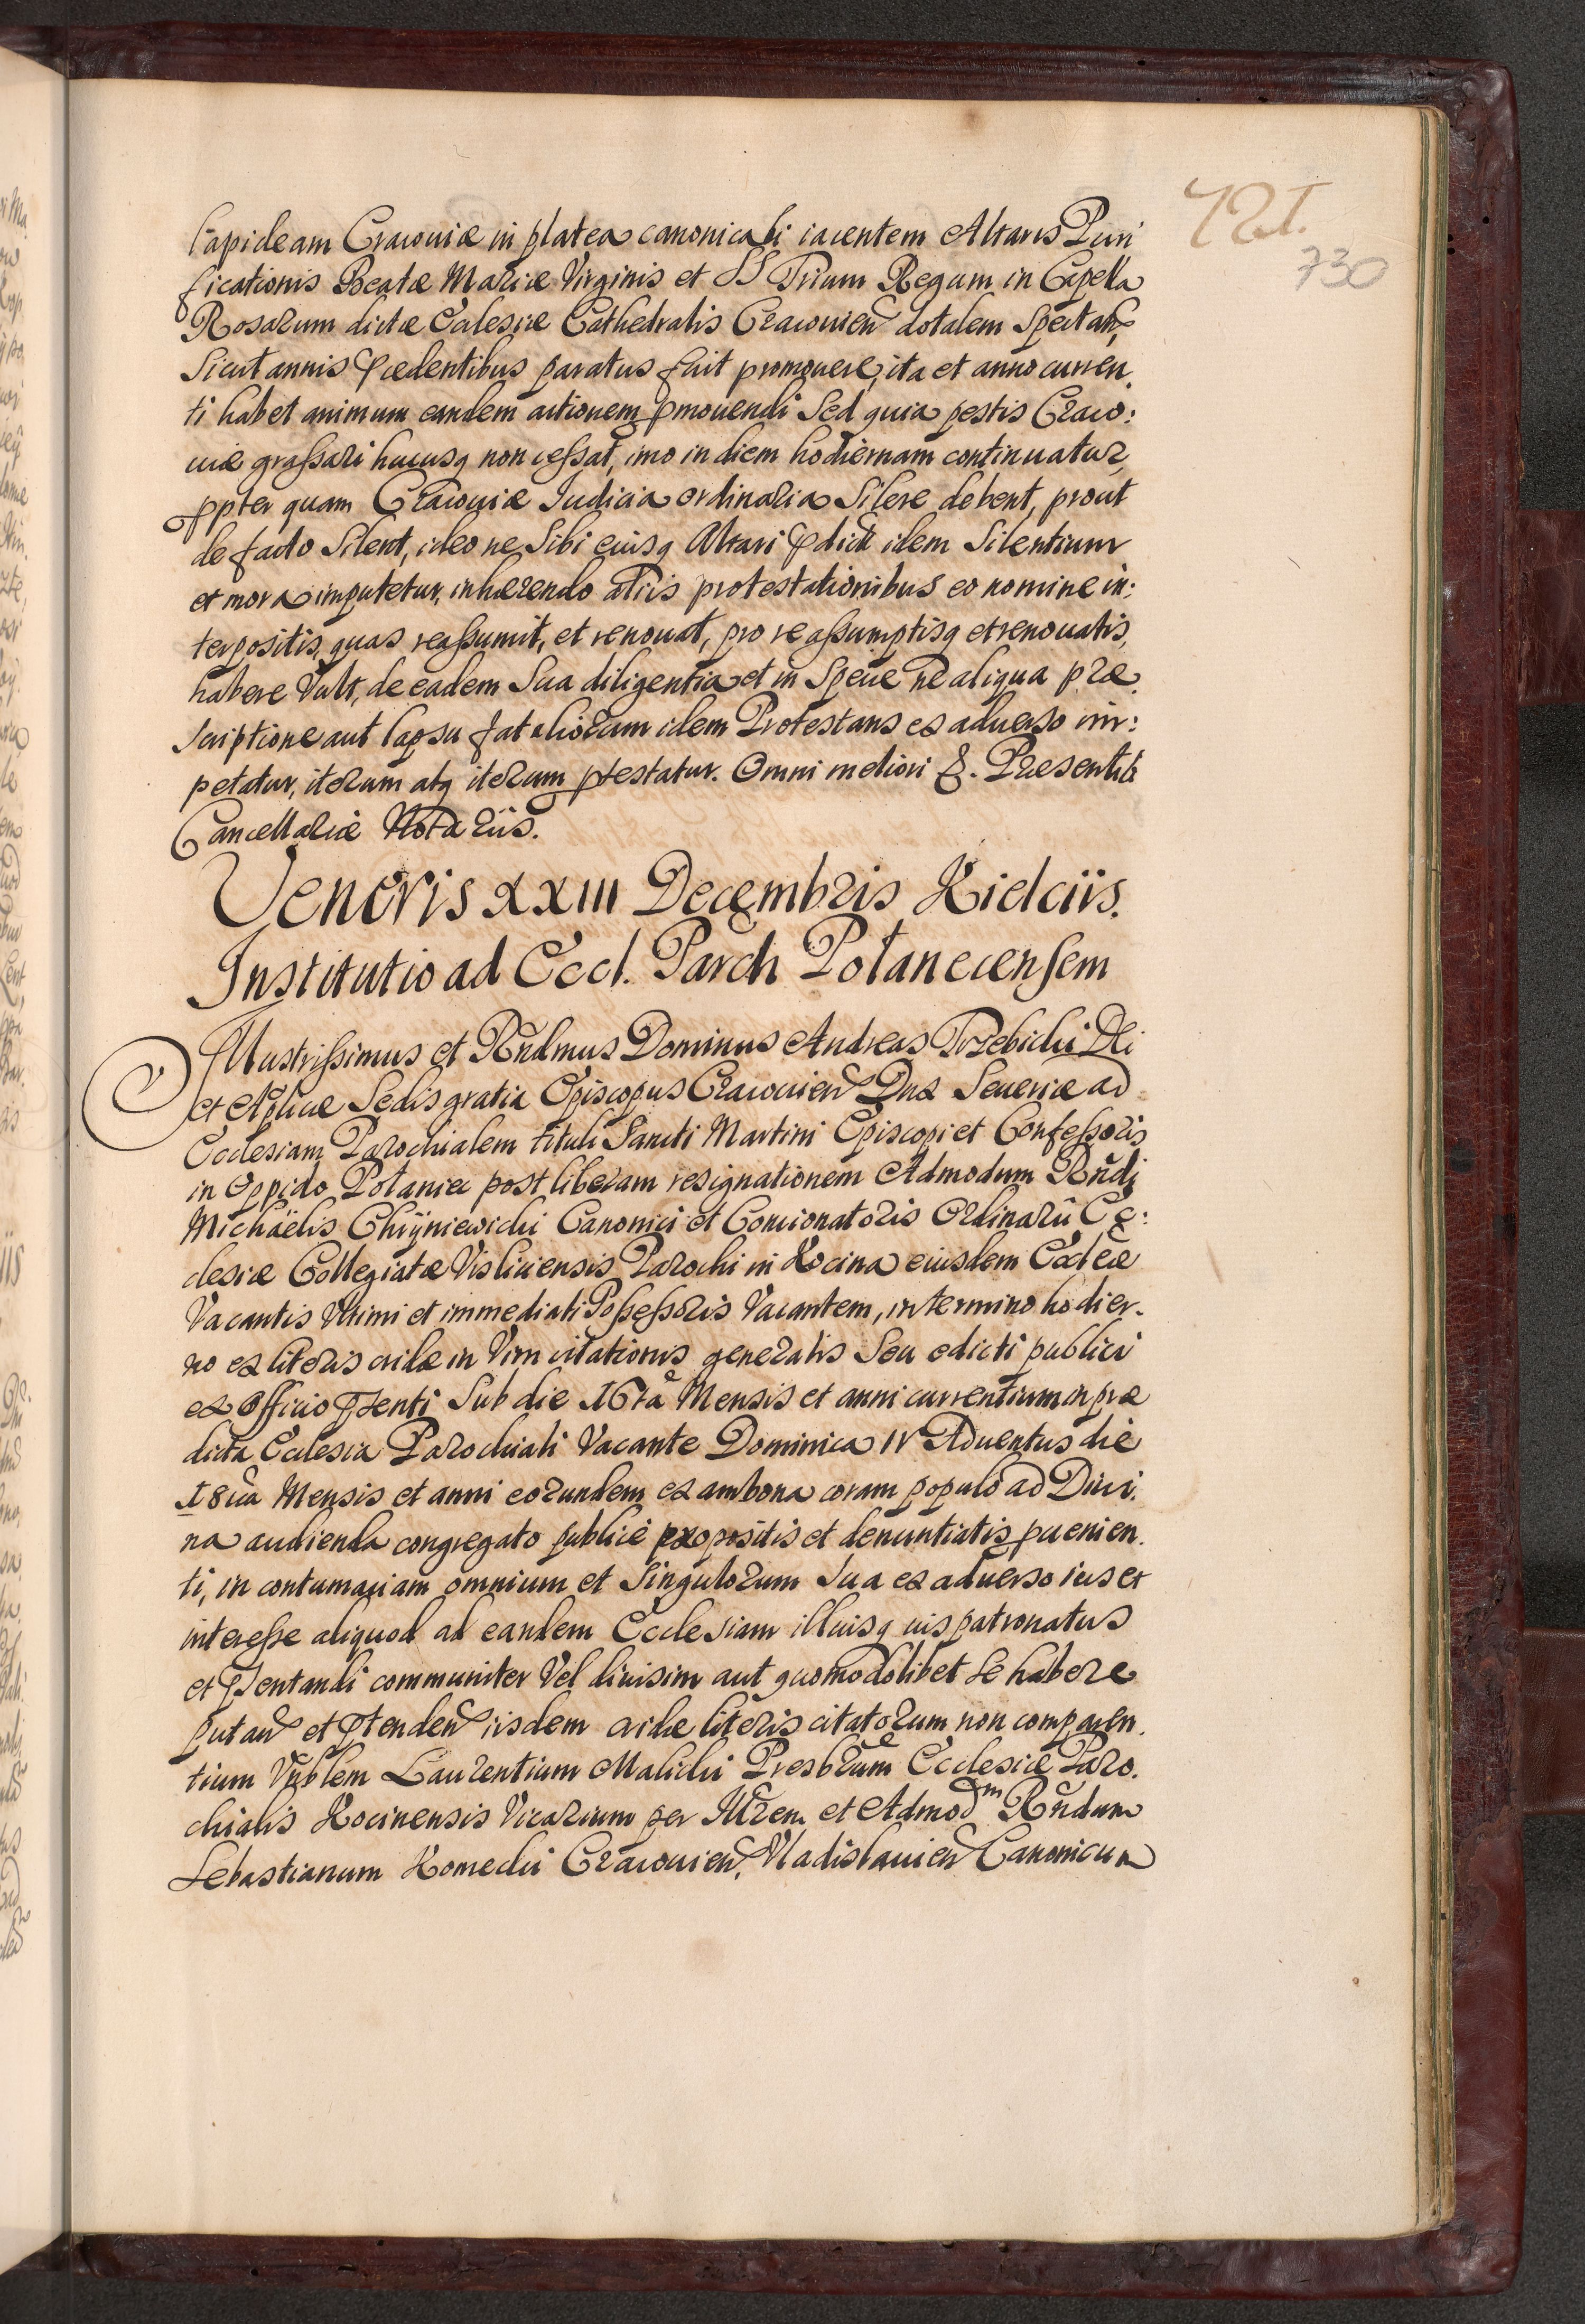 721.
730
lapideam Cracouiæ in platea canonicali iacentem Altaris Puri
ficationis Beatæ Mariæ Virginis et SS Trium Regum in Capella
Rosarum dictæ Ecclesiæ Cathedralis Cracouien dotalem Spectan,
Sicut annis pcedentibus paratus fuit promouere, ita et anno curren.
ti habet animum eandem actionem pmouendi Sed quia pestis Craco:
uiæ graſsari hucusq non ceſsat, imo in diem hodiernam continuatur,
ppter quam Cracouiæ Iudicia ordinaria Silere debent, prout
de facto Silent, ideo ne Sibi eiusq Altari pdict idem Silentium
et mora imputetur, inhærendo aliis protestationibus eo nomine in:
terpositis, quas reaſsumit, et renouat, pro reaſsumptisq et renouatis,
habere Vult, de eadem Sua diligentia et in Specie ne aliqua præ.
Scriptione aut lapsu fataliorum idem Protestans ex aduerso im:
petatur, iterum atq iterum ptestatur. Omni meliori &. Præsentib
Cancellariæ Notariis.
Veneris XXIII Decembris Kielciis.
Institutio ad Eccl. Parch Polanecensem
Illustriſsimus et Rñdmus Dominus Andreas Trzebicki Dei
et Aplicæ Sedis gratia Episcopus Cracouien Dux Seueriæ ad
Ecclesiam Parochialem tituli Sancti Martini Episcopi et Confeſsoris
in Oppido Polaniec post liberam resignationem Admodum Rñdi
Michaëlis Chiÿniewicki Canonici et Concionatoris Ordinarii Ec:
clesiæ Collegiatæ Visliciensis Parochi in Kocina eiusdem Eccleæ
Vacantis Vltimi et immediati Poſseſsoris Vacantem, in termino hodier.
no ex literis cridæ in Vim citationis generalis Seu edicti publici
ex Officio psenti Sub die 16ta Mensis et anni currentium in præ
dicta Ecclesia Parochiali Vacante Dominica IV Aduentus die
18ua Mensis et anni eorundem ex ambona coram populo ad Diui.
na audienda congregato publicè propositis et denuntiatis puenien.
ti, in contumaciam omnium et Singulorum Sua ex aduerso ius et
intereſse aliquod ad eandem Ecclesiam illiusq ius patronatus
et psentandi communiter Vel diuisim aut quomodolibet Se habere
putan et ptenden iisdem cridæ literis citatorum non comparen.
tium Vnblem Laurentium Malicki Presbrum Ecclesiæ Paro.
chialis Kocinensis Vicarium per Illrem et Admodm Rñdum
Sebastianum Komecki Cracouien, Vladislauien Canonicum